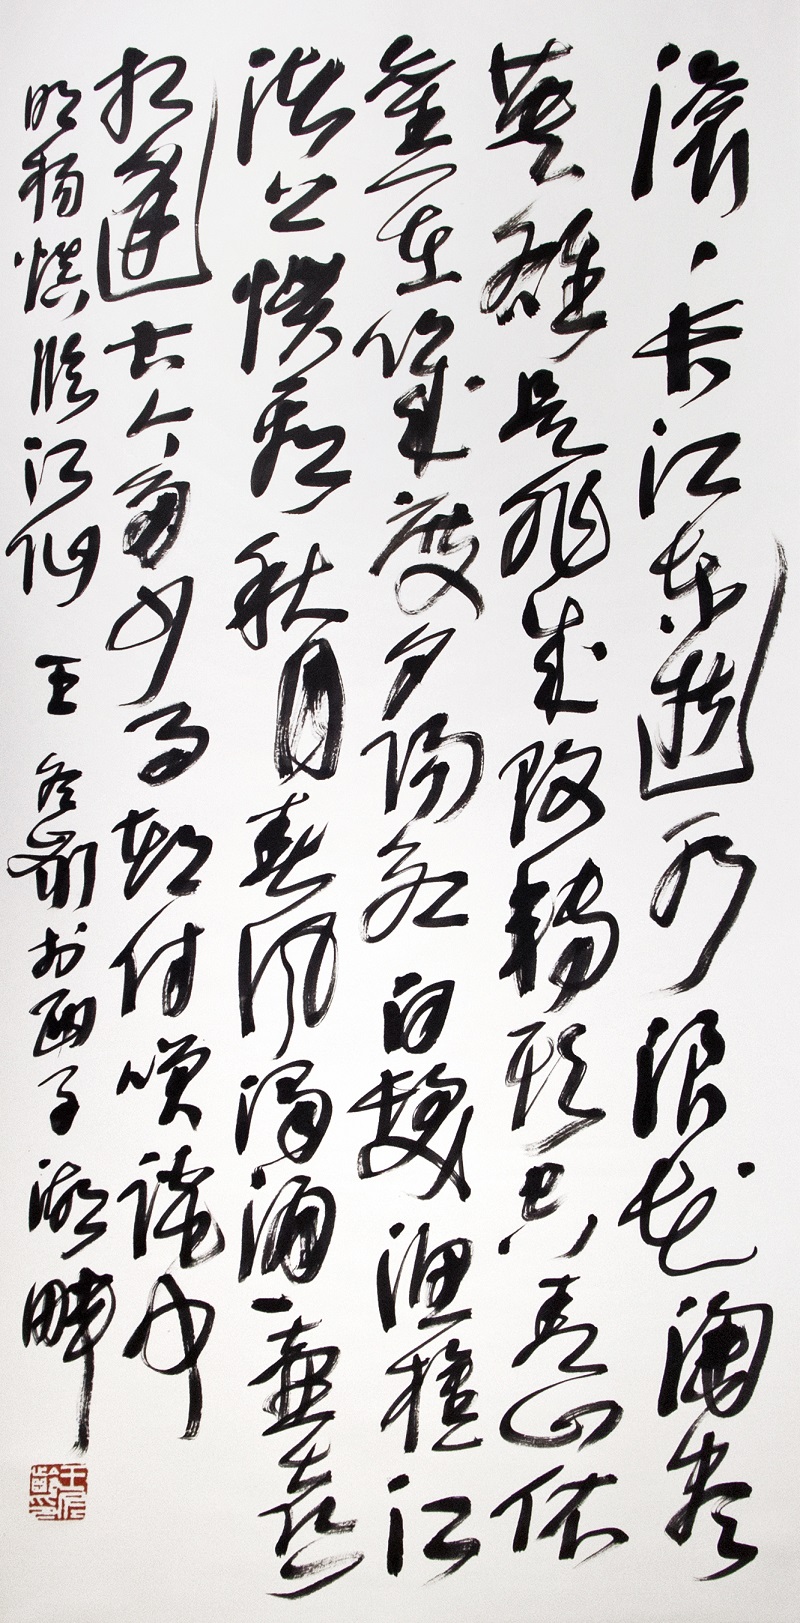 滚〻长江东逝水浪花淘尽
英雄是非成败转头空青山依
舊在幾度夕阳红白髮渔樵江
渚上惯看秋月春风浊酒一壶喜
相逢古今多少事都付咲谈中
明杨慎临江仙 王冬龄於西子湖畔